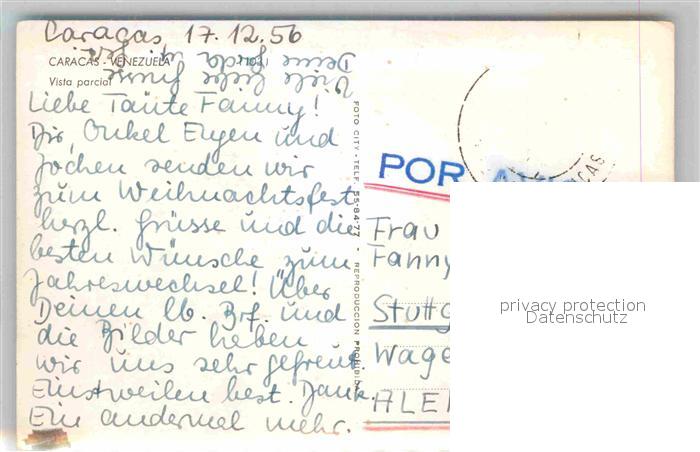 Caracas 17.12.56
CARACAS - VENEZUELA
Vista parcial
Viele liebe Grüsse
Deine Gerda u.
Liebe Tante Fanny!
Dir, Onkel Eugen und
Jochen senden wir
zum Weihnachtsfest
herzl. Grüsse und die
besten Wünsche zum
Jahreswechsel! Über
Deinen lb. Brf. und
die Bilder haben
wir uns sehr gefreut.
Einstweilen best. Dank.
Ein andermal mehr.
FOTO CITY - TELF. 55-84-77 - REPRODUCCION PROHIBIDA
POR
CAS
Frau
Fanny
Stuttg
Wage
ALE
privacy protection
Datenschutz